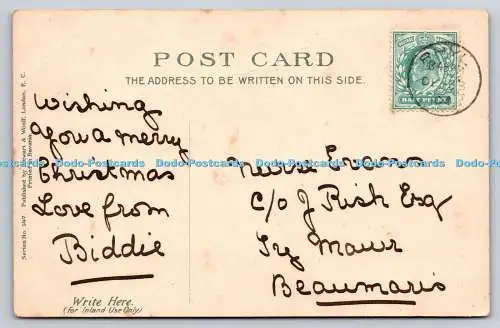 POST CARD
THE ADDRESS TO BE WRITTEN ON THIS SIDE.
HALFPENNY
Wishing
you a merry
Christmas
Love from
Biddie
Nurse Evans
c/o J Rish Esq
Ty Mawr
Beaumaris
Write Here.
(For Inland Use Only)
Series No. 347 Published by Stewart & Woolf, London, E. C.
Printed in Bavaria
Dodo-Postcards Dodo-Postcards Dodo-Postcards Dodo-Postcards Dodo-Postcards